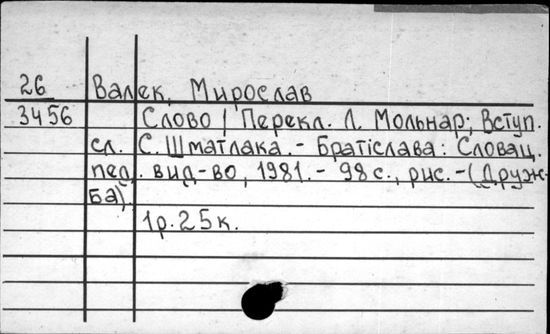 26 Валек, Мирослав
3456 Слово / Перекл. Л. Мольнар; Вступ.
сл. С. Шматлака. - Братіслава: Словац.
пед. вид-во, 1981. - 98 с., рис. - (Друж-
ба).
1р. 25к.